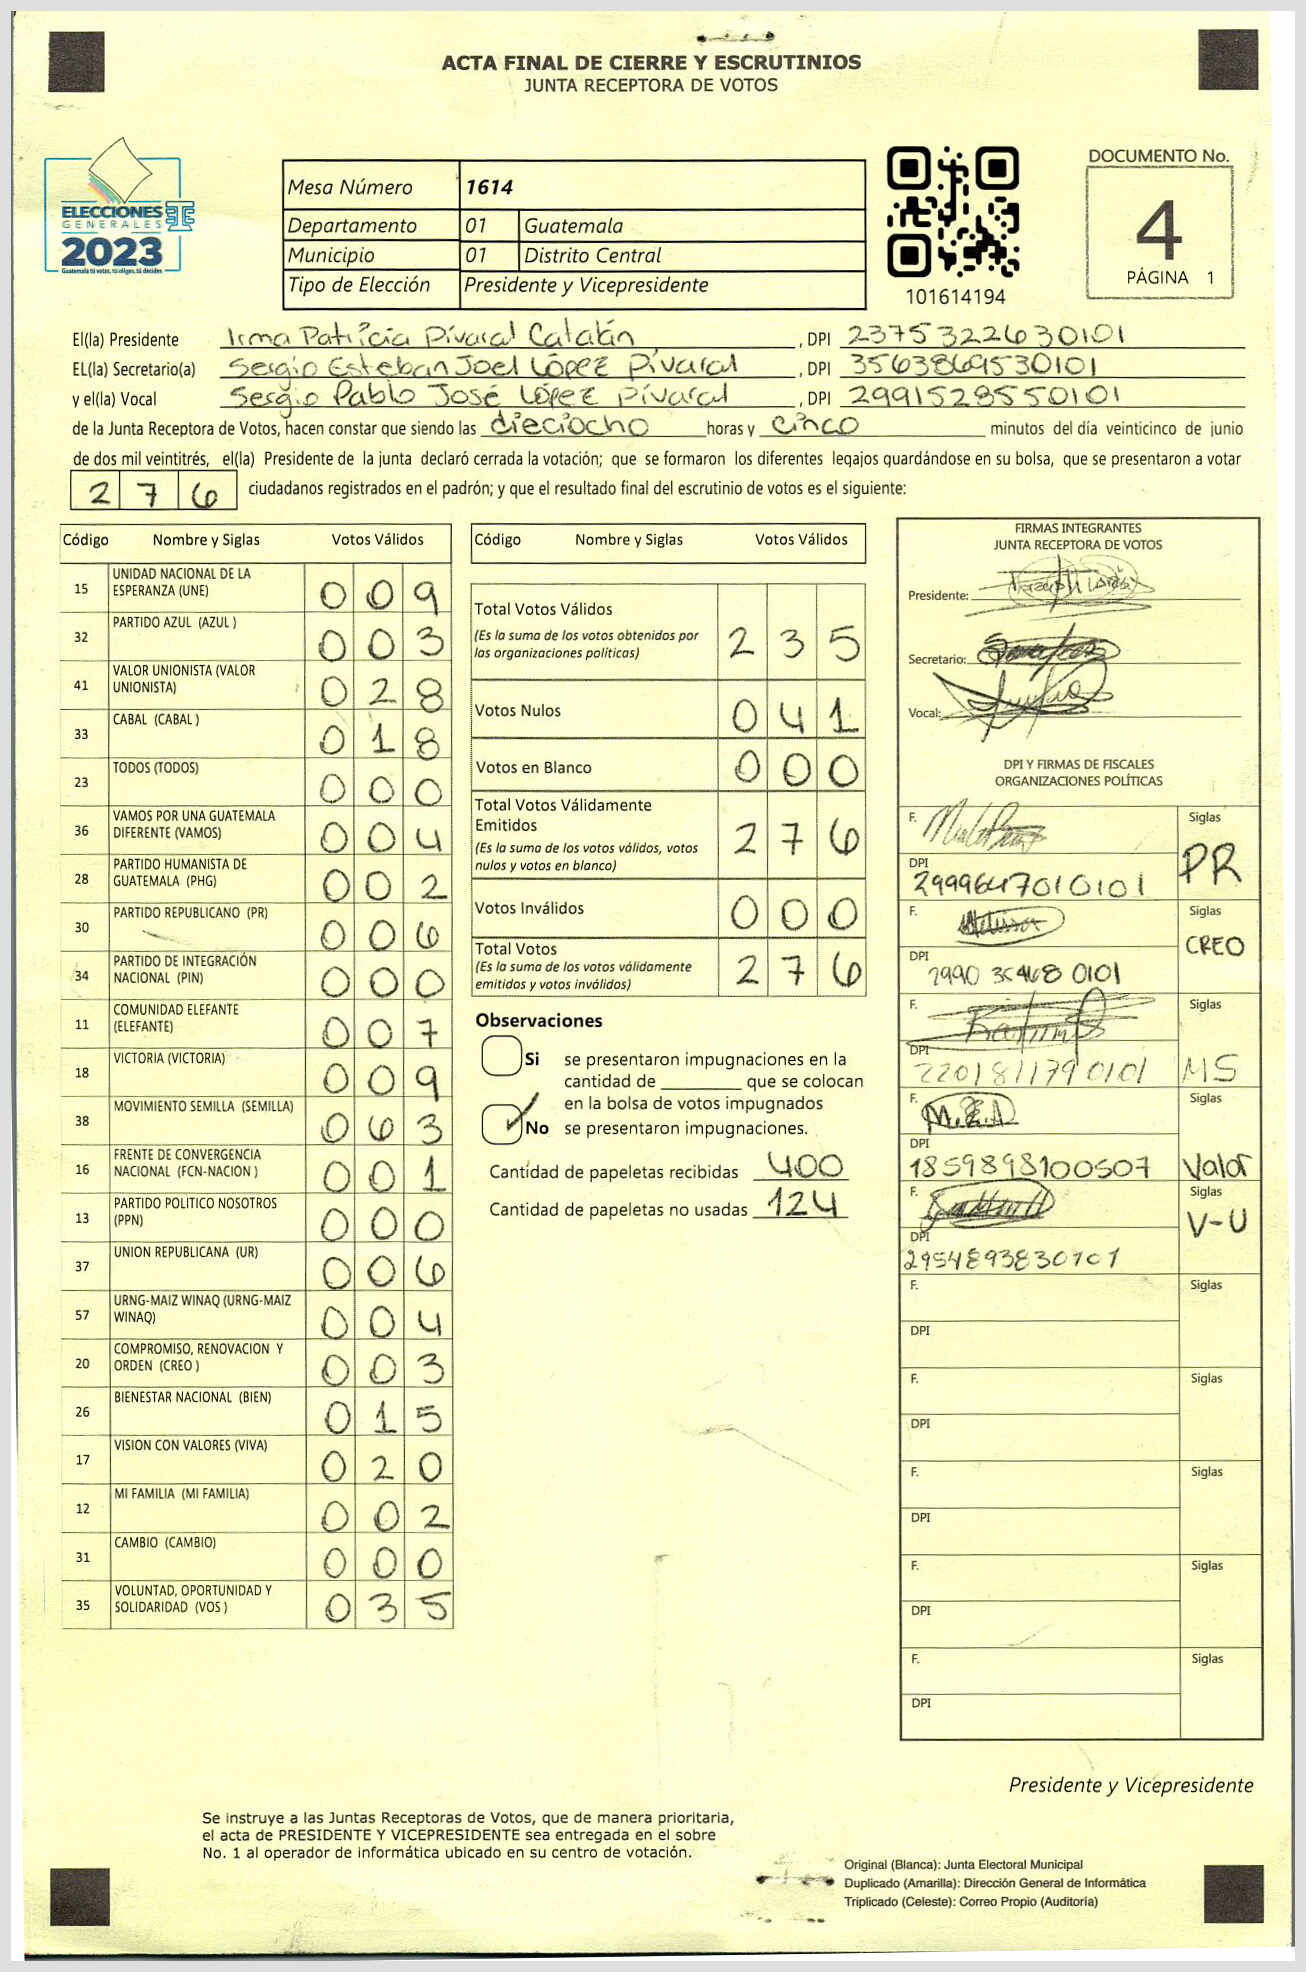 ACTA FINAL DE CIERRE Y ESCRUTINIOS
JUNTA RECEPTORA DE VOTOS
ELECCIONES
GENERALES
2023
Guatemala tú votas, tú eliges, tú decides
Mesa Número 1614
Departamento 01 Guatemala
Municipio 01 Distrito Central
Tipo de Elección Presidente y Vicepresidente
101614194
DOCUMENTO No.
4
PÁGINA 1
El(la) Presidente Irma Patricia Pivaral Catalán, DPI 2375322630101
EL(la) Secretario(a) Sergio Esteban Joel López Pivaral, DPI 3563869530101
y el(la) Vocal Sergio Pablo José López Pivaral, DPI 2991528550101
de la Junta Receptora de Votos, hacen constar que siendo las dieciocho horas y cinco minutos del día veinticinco de junio
de dos mil veintitrés, el(la) Presidente de la junta declaró cerrada la votación; que se formaron los diferentes legajos guardándose en su bolsa, que se presentaron a votar
276 ciudadanos registrados en el padrón; y que el resultado final del escrutinio de votos es el siguiente:
Código Nombre y Siglas Votos Válidos
15 UNIDAD NACIONAL DE LA ESPERANZA (UNE) 009
32 PARTIDO AZUL (AZUL ) 003
41 VALOR UNIONISTA (VALOR UNIONISTA) 028
33 CABAL (CABAL ) 018
23 TODOS (TODOS) 000
36 VAMOS POR UNA GUATEMALA DIFERENTE (VAMOS) 004
28 PARTIDO HUMANISTA DE GUATEMALA (PHG) 002
30 PARTIDO REPUBLICANO (PR) 006
34 PARTIDO DE INTEGRACIÓN NACIONAL (PIN) 000
11 COMUNIDAD ELEFANTE (ELEFANTE) 007
18 VICTORIA (VICTORIA) 009
38 MOVIMIENTO SEMILLA (SEMILLA) 063
16 FRENTE DE CONVERGENCIA NACIONAL (FCN-NACION ) 001
13 PARTIDO POLITICO NOSOTROS (PPN) 000
37 UNION REPUBLICANA (UR) 006
57 URNG-MAIZ WINAQ (URNG-MAIZ WINAQ) 004
20 COMPROMISO, RENOVACION Y ORDEN (CREO ) 003
26 BIENESTAR NACIONAL (BIEN) 015
17 VISION CON VALORES (VIVA) 020
12 MI FAMILIA (MI FAMILIA) 002
31 CAMBIO (CAMBIO) 000
35 VOLUNTAD, OPORTUNIDAD Y SOLIDARIDAD (VOS ) 035
Código Nombre y Siglas Votos Válidos
Total Votos Válidos 235
(Es la suma de los votos obtenidos por
las organizaciones políticas)
Votos Nulos 041
Votos en Blanco 000
Total Votos Válidamente
Emitidos 276
(Es la suma de los votos válidos, votos
nulos y votos en blanco)
Votos Inválidos 000
Total Votos 276
(Es la suma de los votos válidamente
emitidos y votos inválidos)
Observaciones
Si se presentaron impugnaciones en la
cantidad de ________ que se colocan
en la bolsa de votos impugnados
No se presentaron impugnaciones.
Cantidad de papeletas recibidas 400
Cantidad de papeletas no usadas 124
FIRMAS INTEGRANTES
JUNTA RECEPTORA DE VOTOS
Presidente:
Secretario:
Vocal:
DPI Y FIRMAS DE FISCALES
ORGANIZACIONES POLÍTICAS
F. Siglas
DPI PR
2999647010101
F. Siglas
DPI CREO
2990 35468 0101
F. Siglas
DPI
2201811790101 MS
F. M.E.A Siglas
DPI
1859898100507 Valor
F. Siglas
DPI V-U
2954893830101
F. Siglas
DPI
F. Siglas
DPI
F. Siglas
DPI
F. Siglas
DPI
F. Siglas
DPI
Presidente y Vicepresidente
Se instruye a las Juntas Receptoras de Votos, que de manera prioritaria,
el acta de PRESIDENTE Y VICEPRESIDENTE sea entregada en el sobre
No. 1 al operador de informática ubicado en su centro de votación.
Original (Blanca): Junta Electoral Municipal
Duplicado (Amarilla): Dirección General de Informática
Triplicado (Celeste): Correo Propio (Auditoría)